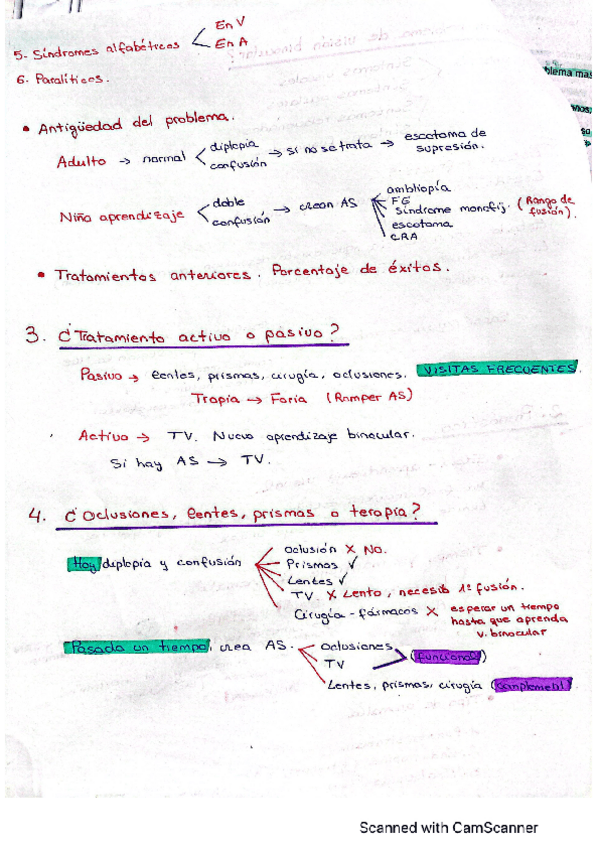 5- Síndromes alfabéticos
En V
En A
6. Paralíticos.
• Antigüedad del problema.
Adulto → normal
diplopia
confusión
→ si no se trata → escotoma de supresión.
Niño aprendizaje
doble
confusión
→ crean AS
ambliopía
FE
síndrome monofij. (Rango de fusión).
escotoma
CRA
• Tratamientos anteriores. Porcentaje de éxitos.
3. ¿Tratamiento activo o pasivo?
Pasivo → lentes, prismas, cirugía, oclusiones. VISITAS FRECUENTES.
Tropia → Foria (Romper AS)
Activo → TV. Nuevo aprendizaje binocular.
Si hay AS → TV.
4. ¿Oclusiones, lentes, prismas o terapia?
Hoy diplopia y confusión
Oclusión X No.
Prismas ✓
Lentes ✓
TV. X Lento, necesib 1º fusión.
Cirugía - fármacos X esperar un tiempo
hasta que aprenda
v. binocular
Pasado un tiempo, crea AS.
Oclusiones
TV
(funcional)
Lentes, prismas, cirugía (complement)
Scanned with CamScanner